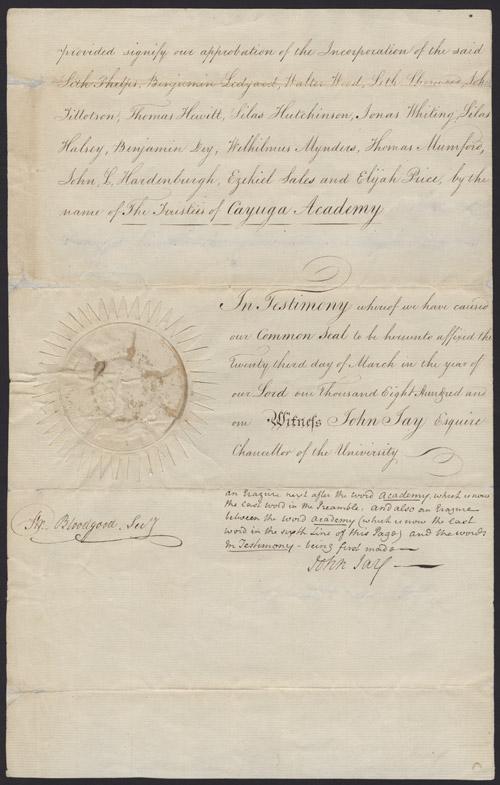 provided signify our approbation of the Incorporation of the said
Seth Phelps, Benjamin Ledyard, Walter Wood, Seth Sherwood, John
Tillotson, Thomas Hewitt, Silas Hutchinson, Jonas Whiting, Silas
Halsey, Benjamin Dey, Wilhilmus Mynders, Thomas Mumford,
John L. Hardenburgh, Ezekiel Sales and Elijah Price, by the
name of The Trustees of Cayuga Academy
In Testimony whereof we have caused
our Common Seal to be hereunto affixed the
Twenty third day of March in the year of
our Lord one Thousand Eight Hundred and
one Witness John Jay Esquire
Chancellor of the University
an Erazure next after the word Academy, which is now
the last word in the Preamble, and also an Erazure
between the word Academy (which is now the last
word in the sixth Line of this Page) and the words
In Testimony - being first made —
John Jay —
Fr. Bloodgood. Secy